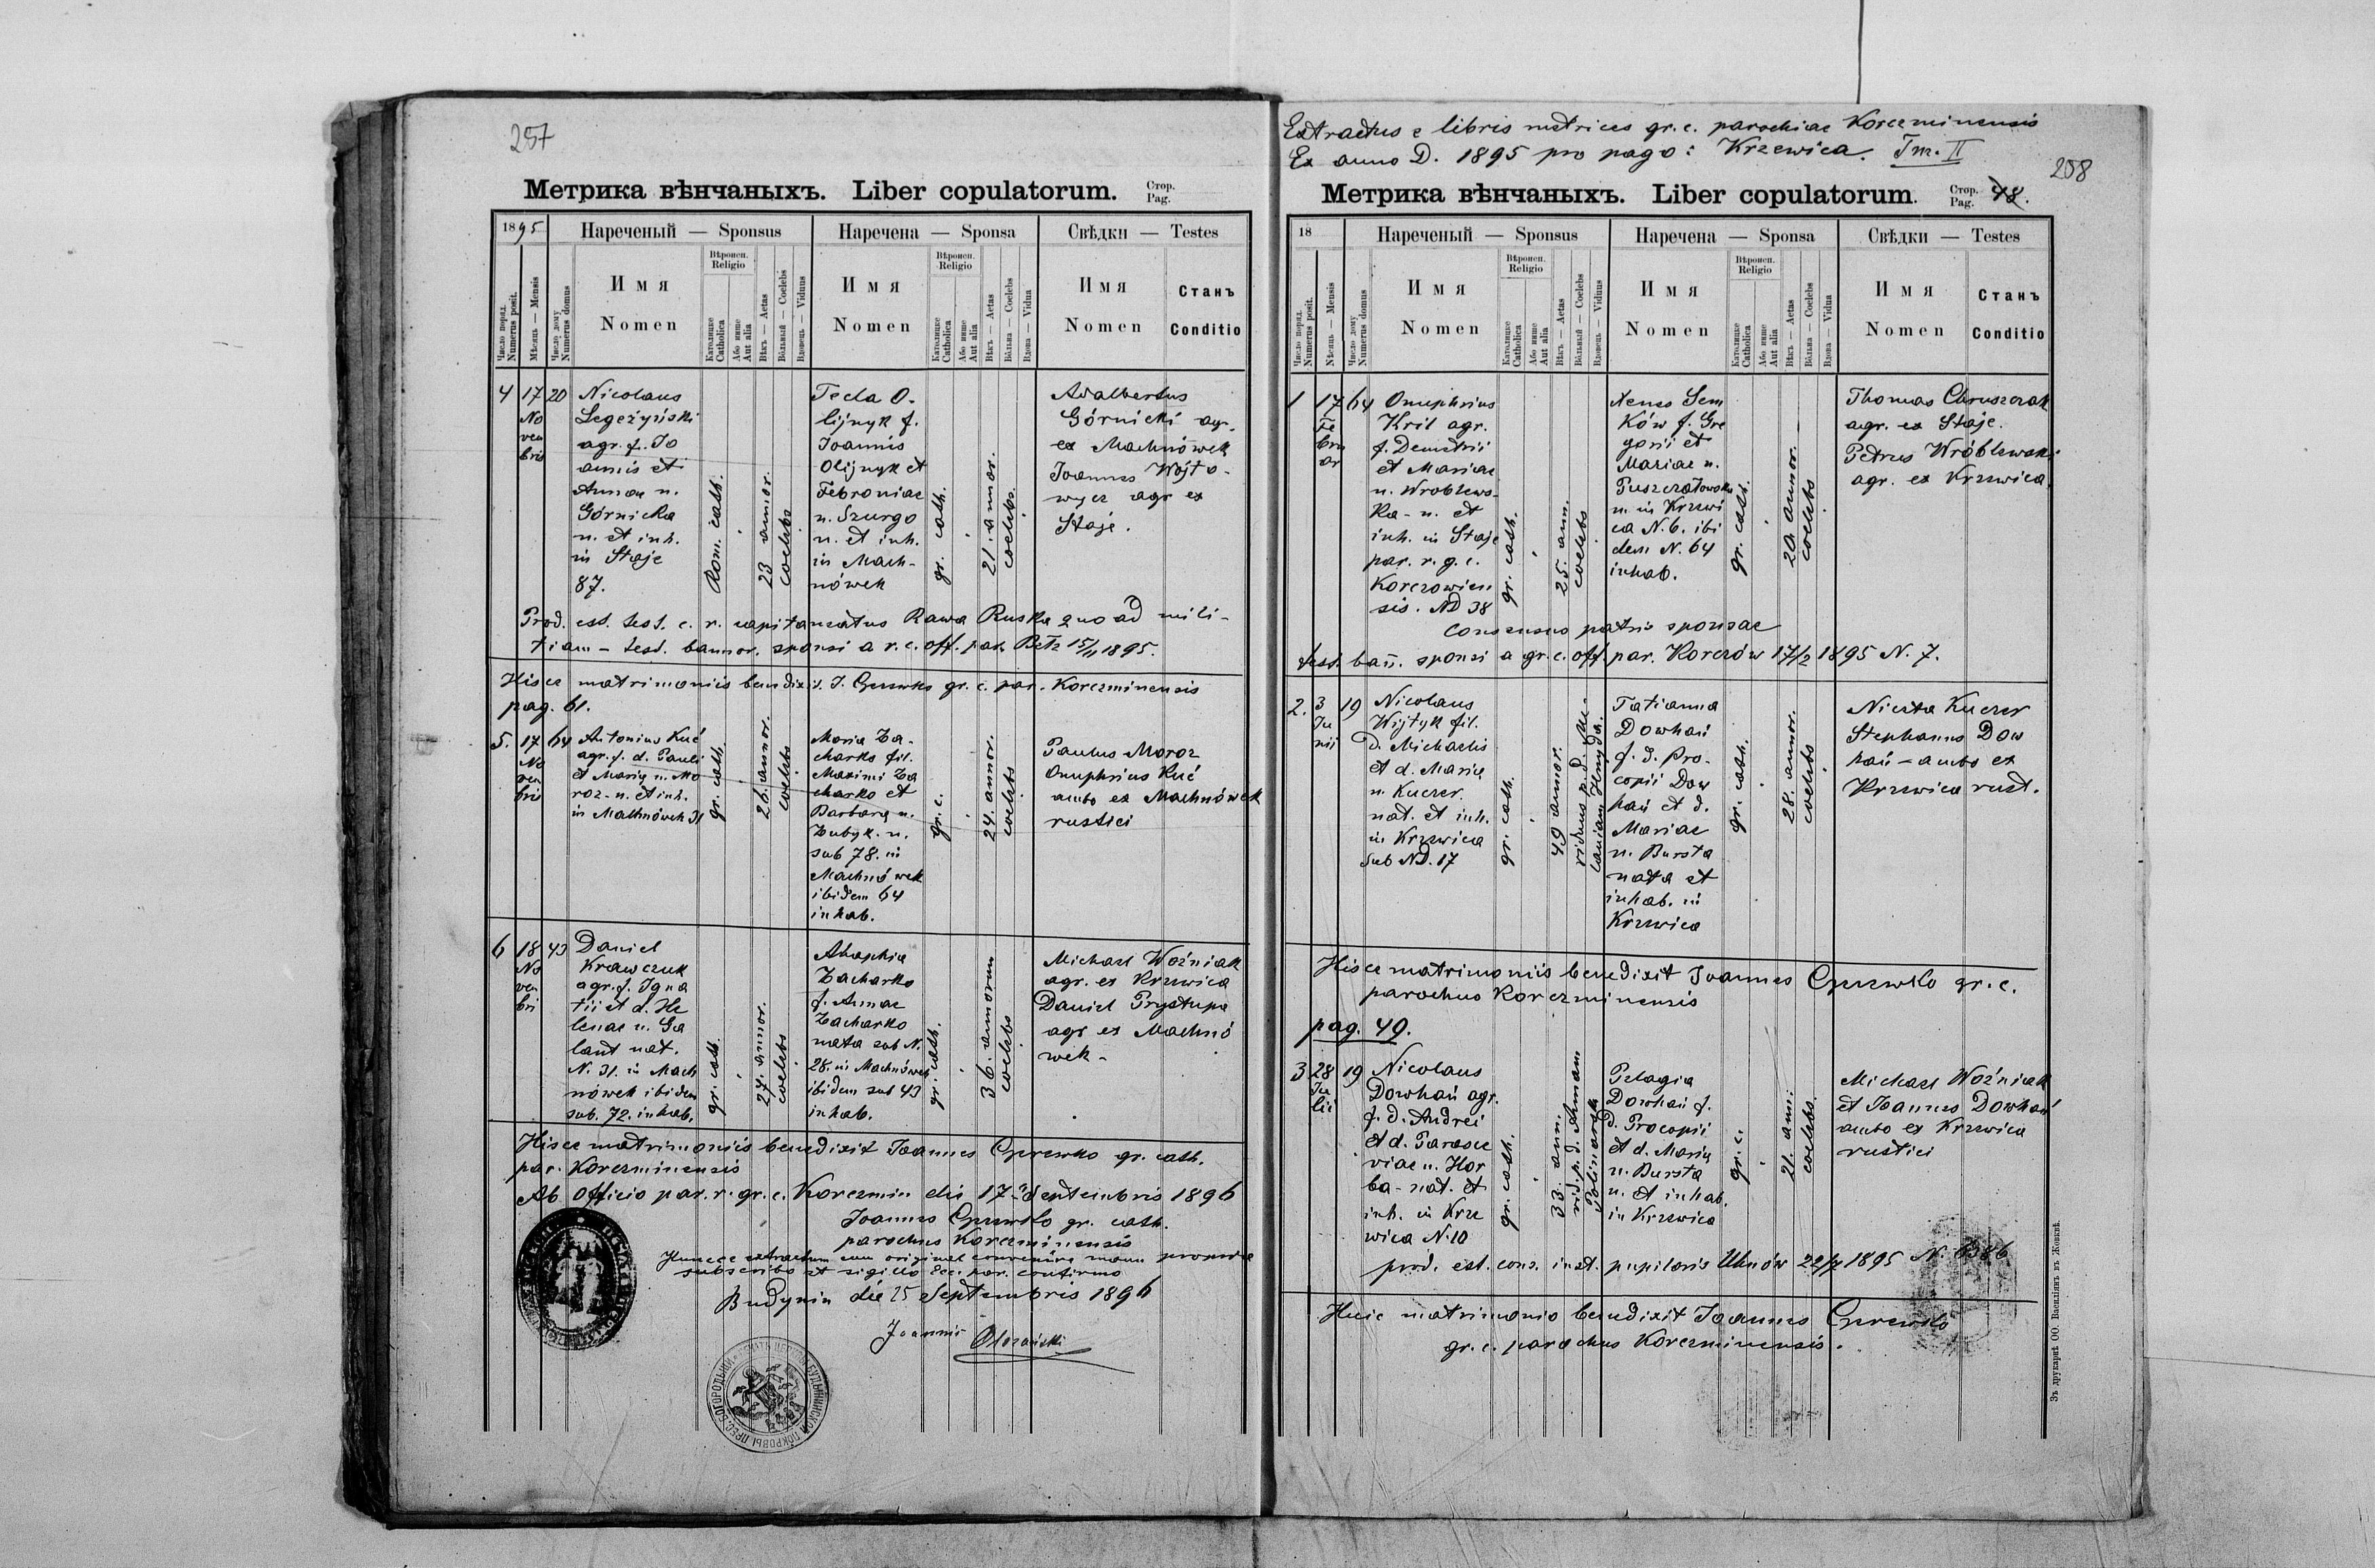 257
Метрика вѣнчаныхъ. Liber copulatorum.
Стор.
Pag.
1895
Нареченый — Sponsus
Наречена — Sponsa
Свѣдки — Testes
Число поряд.
Numerus posit.
Мѣсяць — Mensis
Число дому
Numerus domus
Имя
Nomen
Вѣроисп.
Religio
Католицке
Catholica
Або инше
Aut alia
Вѣкъ — Aetas
Вольный — Coelebs
Вдовець — Viduus
Имя
Nomen
Вѣроисп.
Religio
Католицке
Catholica
Або инше
Aut alia
Вѣкъ — Aetas
Вольна — Coelebs
Вдова — Vidua
Имя
Nomen
Станъ
Conditio
4
17
No
vem
bris
20
Nicolaus
Legeżyński
agr. f. Jo
annis et
Annae n.
Górnicka
n. et inh.
in Staje
87.
Rom. cath.
23 annor.
coelebs
Tecla O-
lijnyk f.
Joannis
Olijnyk et
Febroniae
n. Szurgo
n. et inh.
in Mach-
nówek
gr. cath.
21. annor.
coelebs.
Adalbertus
Górnicki agr.
ex Machnówek
Joannes Wojto-
wycz agr ex
Staje.
Prod. est. test. c. r. capitaneatus Rawa Ruska quo ad mili-
tiam - test. bannor. sponsi a r. c. off. par. Bełz 15/11 1895.
Hisce matrimoniis benedixit J. gr. c. par. Korczminensis
pag. 61.
5.
17
No
vem
bris
64
Antonius Kuć
agr. f. d. Pauli
et Mariae n. Mo
roz - n. et inh.
in Machnówek 31
gr. cath.
26. annor.
coelebs
Maria Za-
charko fil.
Maximi Za
charko et
Barbarae n.
Zubyk. n.
sub 78. in
Machnówek
ibidem 64
inhab.
gr. c.
24. annor.
coelebs
Paulus Moroz
Onuphrius Kuć
ambo ex Machnówek
rustici
6
18
No
vem
bri
43
Daniel
Krawczuk
agr. f. Igna
tii et d. He
lenae n. Ga
lant nat.
N. 31. in Mach
nówek ibidem
sub. 72. inhab.
gr. cath.
27. annor.
coelebs
Ahaphia
Zacharko
f. Annae
Zacharko
nata sub N.
28. in Machnówek
ibidem sub 43
inhab.
gr. cath.
36. annorum
coelebs
Michael Woźniak
agr. ex Krzewica
Daniel Prystupa
agr ex Machnó
wek -
Hisce matrimoniis benedixit Joannes gr. cath.
par. Korczminensis
Ab officio par. r. gr. c. Korczmin die 17 Septembris 1896
Joannes gr. cath.
parochus Korczminensis
Hunce extractum cum originali convenire manu propria
subscribo et sigillo Ecc. par. confirmo
Budynin die 25 Septembris 1896
Joannes
Extractus e libris metrices gr. c. parochiae Korczminensis
Ex anno D. 1895 pro pago: Krzewica. Tm. II
258
Метрика вѣнчаныхъ. Liber copulatorum.
Стор.
Pag.
48.
18
Нареченый — Sponsus
Наречена — Sponsa
Свѣдки — Testes
Число поряд.
Numerus posit.
Мѣсяць — Mensis
Число дому
Numerus domus
Имя
Nomen
Вѣроисп.
Religio
Католицке
Catholica
Або инше
Aut alia
Вѣкъ — Aetas
Вольный — Coelebs
Вдовець — Viduus
Имя
Nomen
Вѣроисп.
Religio
Католицке
Catholica
Або инше
Aut alia
Вѣкъ — Aetas
Вольна — Coelebs
Вдова — Vidua
Имя
Nomen
Станъ
Conditio
1
17
Fe
bru
ar
64
Onuphrius
Kril agr.
f. Demetrii
et Mariae
n. Wroblews-
ka - n. et
inh. in Staje
par. r. g. c.
Korczowien
sis. ND 38
gr. cath.
25. ann.
coelebs
Xenes Sem
ków f. Gre
gorii et
Mariae n.
Puszczałowska
n. in Krzewi
ca N. 6. ibi
dem N. 64
inhab.
gr. cath.
20. annor.
coelebs
Thomas Chruszczak
agr. ex Staje.
Petrus Wróblewski
agr. ex Krzewica.
Consensus patris sponsae
test. bañ. sponsi a gr. c. off. par. Korczów 17/2 1895 N. 7.
2.
3
Ju
nii
19
Nicolaus
Wijtyk fil.
d. Michaelis
et d. Mariae
n. Kuczer.
nat. et inh.
in Krzewica
sub ND. 17
gr. cath.
49 annor.
viduus p. d. Me-
laniam Hnyda.
Tatianna
Dowhań
f. d. Pro-
copii Dow
hań et d.
Mariae
n. Bursta
nata et
inhab. in
Krzewica
gr. cath.
28. annor.
coelebs
Niczta Kuczer
Stephanus Dow
hań - ambo ex
Krzewica rust.
Hisce matrimoniis benedixit Joannes gr. c.
parochus Korczminensis
pag. 49.
3
28
Ju
lii
19
Nicolaus
Dowhań agr.
f. d. Andrei
et d. Parasce
viae n. Hor
ba - nat. et
inh. in Krze
wica N. 10
gr. cath.
33. ann.
vid. p. d. Annam
Polinarek
Pelagia
Dowhań f.
d. Procopii
et d. Mariae
n. Bursta
n. et inhab.
in Krzewica
gr. c.
21. ann.
coelebs.
Michael Woźniak
et Joannes Dowhań
ambo ex Krzewica
rustici
prod. est. cons. inst. pupilaris Uhnów 1895 N.
Huic matrimonio benedixit Joannes
gr. c. parochus Korczminensis.
Зъ друкарнѣ ОО. Василіянъ въ Жовквѣ.